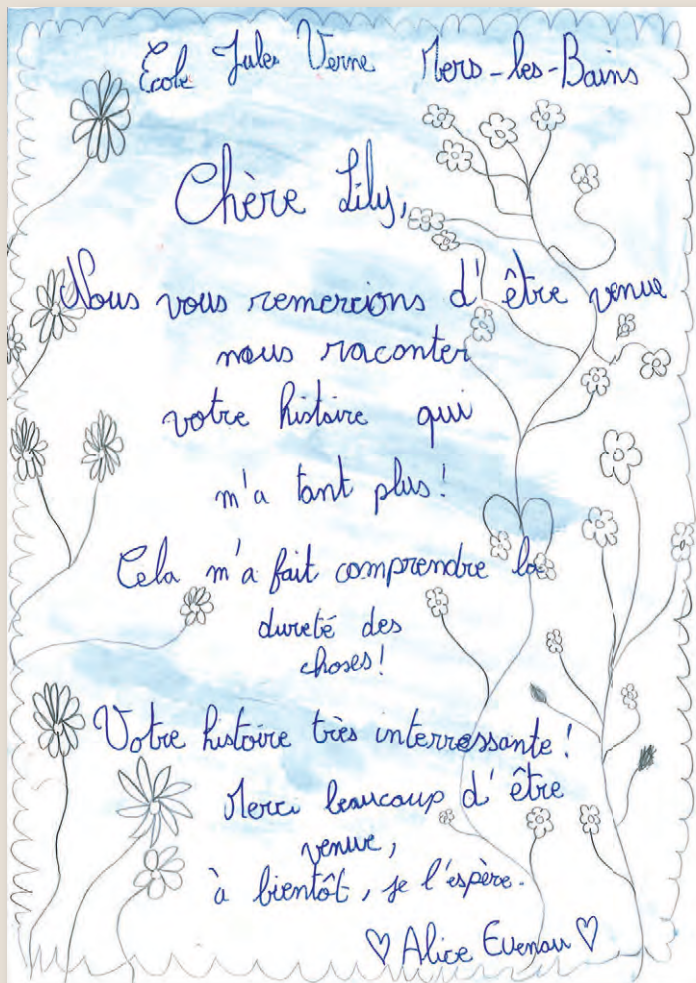 Ecole Jules Verne Mers-les-Bains
Chère Lily,
Nous vous remercions d'être venue
nous raconter
votre histoire qui
m'a tant plus!
Cela m'a fait comprendre la
dureté des
choses!
Votre histoire très interressante!
Merci beaucoup d'être
venue,
à bientôt, je l'espère.
♡ Alice Evenau ♡